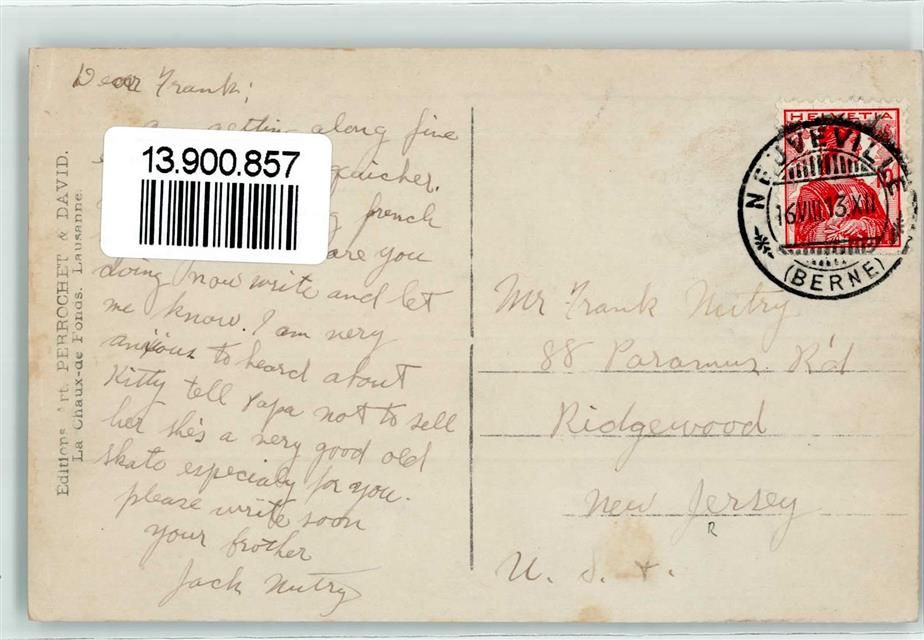 Dear Frank;
getting along fine
quicker.
french
are you
doing now write and let
me know. I am very
anxious to heard about
Kitty tell Papa not to sell
her she's a very good old
skate especialy for you.
please write soon
your brother
Jack Nutry
13.900.857
Editions Art. PERROCHET & DAVID.
La Chaux-de Fonds. Lausanne.
HELVETIA
NEUVEVILLE
16.VIII.13.XII
(BERNE)
Mr Frank Nutry
88 Paramus R'd
Ridgewood
New Jersey
R
U. S. A.